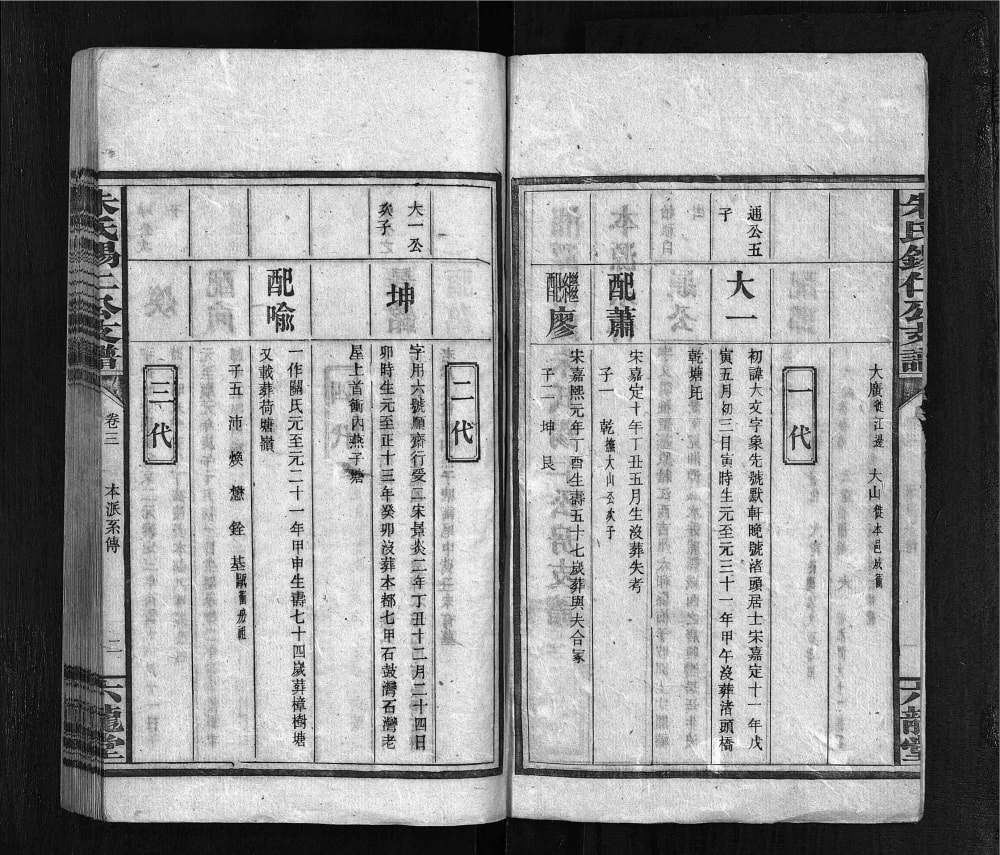 大廣徙江邊　大山徙本邑成衝
一代
通公五
子
大一
初諱大文字象先號默軒晚號渚頭居士宋嘉定十一年戊
寅五月初三日寅時生元至元三十一年甲午沒葬渚頭橋
乾塘坑
配蕭
宋嘉定十年丁丑五月生沒葬失考
子一　乾擔大山公次子
繼配廖
宋嘉熙元年丁酉生壽五十七歲葬與夫合冢
子二　坤　艮
二代
大一公
次子
坤
字用六號順齋行受二宋景炎二年丁丑十二月二十四日
卯時生元至正十三年癸卯沒葬本都七甲石鼓灣石灣老
屋上首衝內燕子塘
配喻
一作關氏元至元二十一年甲申生壽七十四歲葬樟樹塘
又載葬荷塘嶺
子五　沛　煥　懋　銓　基
三代
卷三
本派系傳
二
六龍堂